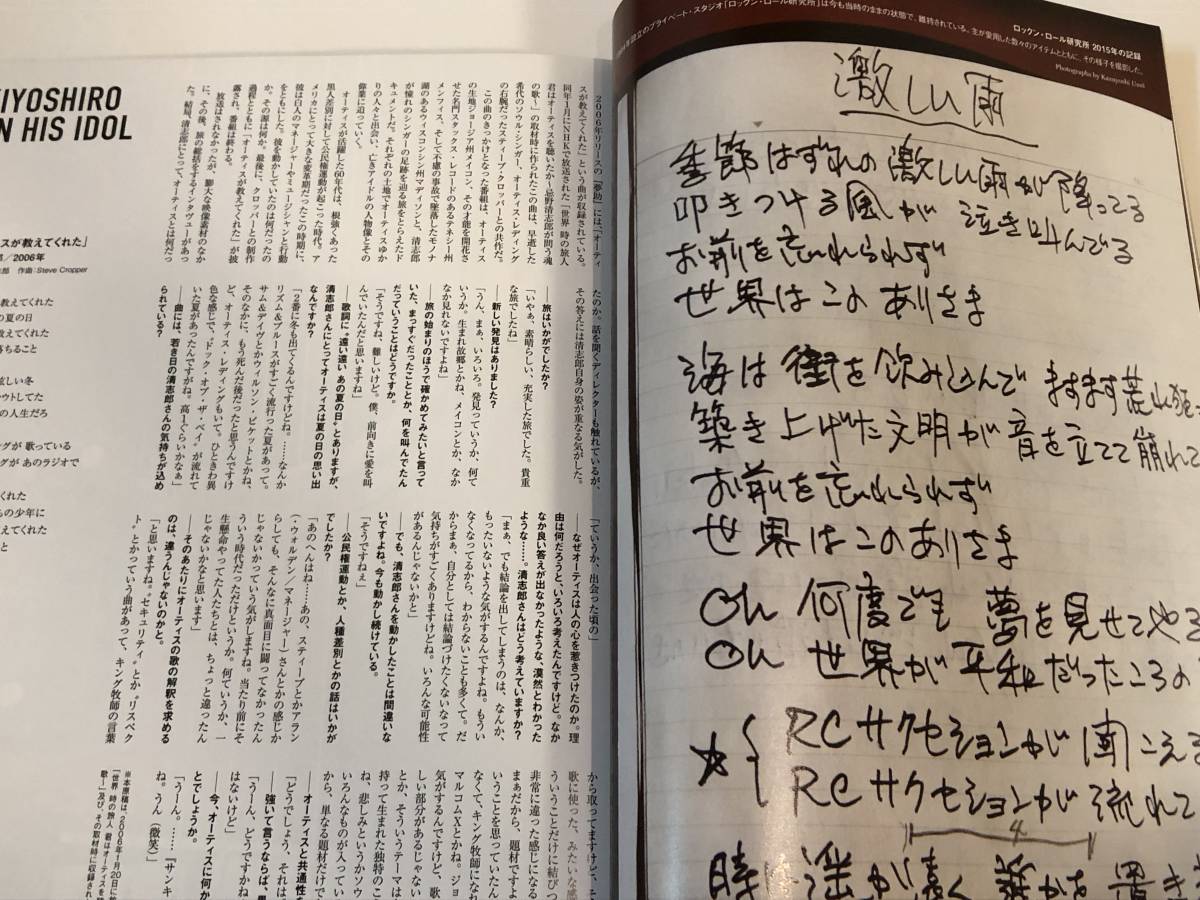 KIYOSHIRO
N HIS IDOL
スが教えてくれた」
／2006年
作曲：Steve Cropper
教えてくれた
の夏の日
教えてくれた
落ちること
眩しい冬
ウトしてた
の人生だろ
グが 歌っている
グが あのラジオで
くれた
もの少年に
えてくれた
と
2006年リリースの『夢助』には「オーティ
スが教えてくれた」という曲が収録されている。
同年1月にNHKで放送された「世界 時の旅人
君はオーティスを聴いたか～忌野清志郎が問う魂
の歌～」の取材時に作られたこの曲は、早逝した
希代のソウル・シンガー、オーティス・レディング
の右腕だったスティーブ・クロッパーとの共作だ。
この曲のきっかけとなった番組は、オーティス
の生地ジョージア州メイコン、その才能を開花さ
せた名門スタックス・レコードのあるテネシー州
メンフィス、そして不慮の事故で墜落したモノナ
湖のあるウィスコンシン州マディソンと、清志郎
が憧れのシンガーの足跡を辿る旅をとらえたド
キュメントだ。それぞれの土地でオーティスゆか
りの人々と出会い、亡きアイドルの人物像とその
偉業に迫っていく。
オーティスが活躍した60年代は、根強くあった
黒人差別に対して公民権運動が起こった時代。ア
メリカにとって大きな変革期だったこの時期に、
彼は白人のマネージャーやミュージシャンと行動
をともにした。彼を動かしていたのは何だった
か。その源は何か。最後に、クロッパーとの制作
過程とともに「オーティスが教えてくれた」が披
露され、番組は終わる。
放送はされなかったが、膨大な映像素材のなか
に、その後、旅の総括をするインタヴューがあっ
た。結局、清志郎にとって、オーティスとは何だっ
たのか。話を聞くディレクターも触れているが、
その答えには清志郎自身の姿が重なる気がした。
――旅はいかがでしたか？
「いやぁ、素晴らしい、充実した旅でした。貴重
な旅でしたね」
――新しい発見はありました？
「うん、まぁ、いろいろ。発見っていうか、何て
いうか。生まれ故郷とかね、メイコンとか、なか
なか見れないですよね」
――旅の始まりのほうで確かめてみたいと言って
いた、まっすぐだったこととか、何を叫んでたん
だっていうことはどうですか。
「そうですね、難しいけど。僕、前向きに愛を叫
んでいたんだと思いますね」
――歌詞に“遠い遠い あの夏の日”とありますが、
清志郎さんにとってオーティスは夏の日の思い出
なんですか？
「2番に冬も出てくるんですけどね。……なんか
リズム＆ブルースがすごく流行った夏があって。
サム＆デイヴとかウィルソン・ピケットとかね、
そのなかに、もう死んだ後だったと思うんですけ
ど、オーティス・レディングもいて。ひときわ異
色な感じで、“ドック・オブ・ザ・ベイ”が流れて
いた夏があったんですがね。高1ぐらいかなぁ」
――曲には、若き日の清志郎さんの気持ちが込め
られている？
「ていうか、出会った頃の」
――なぜオーティスは人の心を惹きつけたのか。理
由は何だろうと、いろいろ考えたんですけど。なか
なか良い答えが出なかったような、漠然とわかった
ような……。清志郎さんはどう考えていますか？
「まぁ、でも結論を出してしまうのは、なんか、
もったいないような気がするんですよね。もうい
なくなってるから、わからないことも多くて。だ
からまぁ、自分としては結論づけたくないなって
気持ちがすごくありますけどね。いろんな可能性
があるんじゃないかと」
――でも、清志郎さんを動かしたことは間違いな
いですよね。今も動かし続けている。
「そうですねぇ」
――公民権運動とか、人種差別とかの話はいかが
でしたか？
「あのへんはね……あの、スティーブとかアラン
（・ウォルデン／マネージャー）さんとかの感じか
らしても、そんなに真面目に闘ってなかったん
じゃないかっていう気がしますね。当たり前にそ
ういう時代だっただけというか。何ていうか、一
生懸命やってた人たちとは、ちょっと違ったん
じゃないかなと思います」
――そのあたりにオーティスの歌の解釈を求める
のは、違うんじゃないのかと。
「と思いますね。“セキュリティ”とか“リスペク
ト”とかっていう曲があって、キング牧師の言葉
から取ってますけど、そ
歌に使った、みたいな感
ういうことだけに結びつ
非常に違った感じになる
まぁだから、題材ですよ
いうことを思っていたん
なくて、キング牧師になれ
マルコムXとかね。ジョ
気がするんですけど、歌
しい部分があるじゃない
とか、そういうテーマは
持って生まれた独特のこ
ね、悲しみというかソウ
いろんなものが入ってい
から、単なる題材だけで
――オーティスと共通性
「どうでしょう、それは
――強いて言うならば、
「うーん、どうですかね
はないけど」
――今、オーティスに何か
とでしょうか。
「うーん。……『サンキ
ね。うん（微笑）」
※本原稿は、2006年1月20日に
「世界 時の旅人 君はオーティスを聴
歌～」及び、その取材時に収録され
ロックン・ロール研究所 2015年の記録
年設立のプライベート・スタジオ「ロックン・ロール研究所」は今も当時のままの状態で、維持されている。主が愛用した数々のアイテムとともに、その様子を撮影した。
Photographs by
激しい雨
季節はずれの激しい雨が降ってる
叩きつける風が 泣き叫んでる
お前を忘れられず
世界はこのありさま
海は街を飲み込んで ますます荒れ狂っ
築き上げた文明が 音を立てて崩れて
お前を忘れられず
世界はこのありさま
Oh 何度でも 夢を見せてやる
Oh 世界が平和だったころの
☆{ RCサクセションが聞こえる
RCサクセションが流れて
4